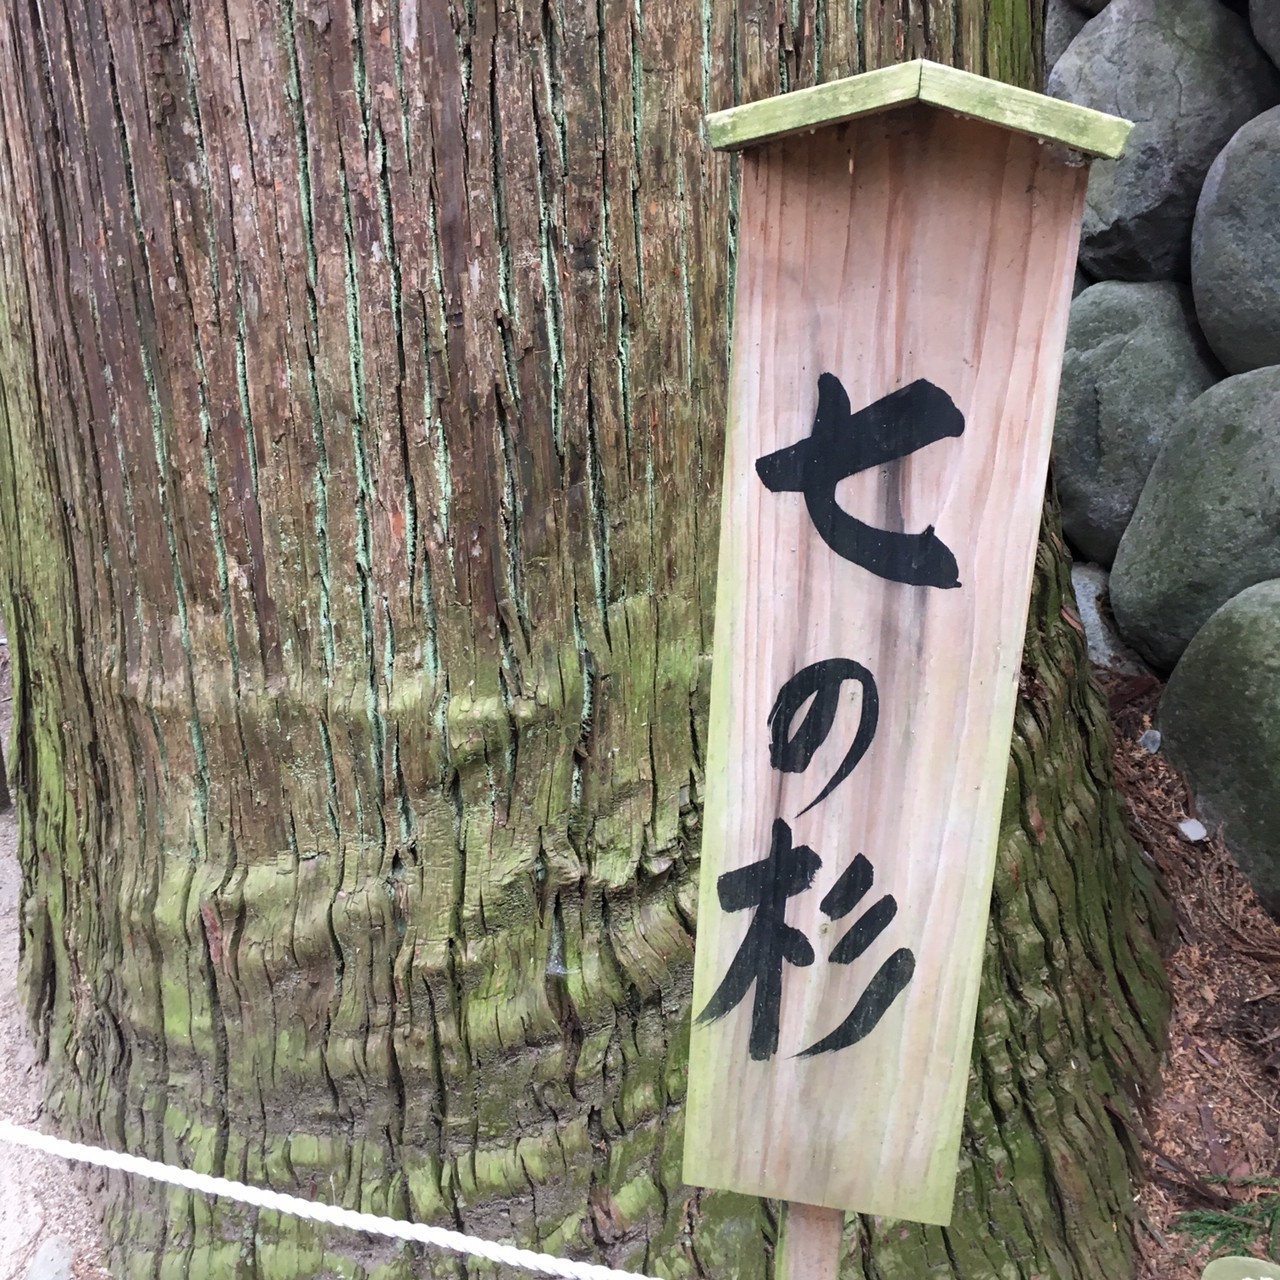 七の杉